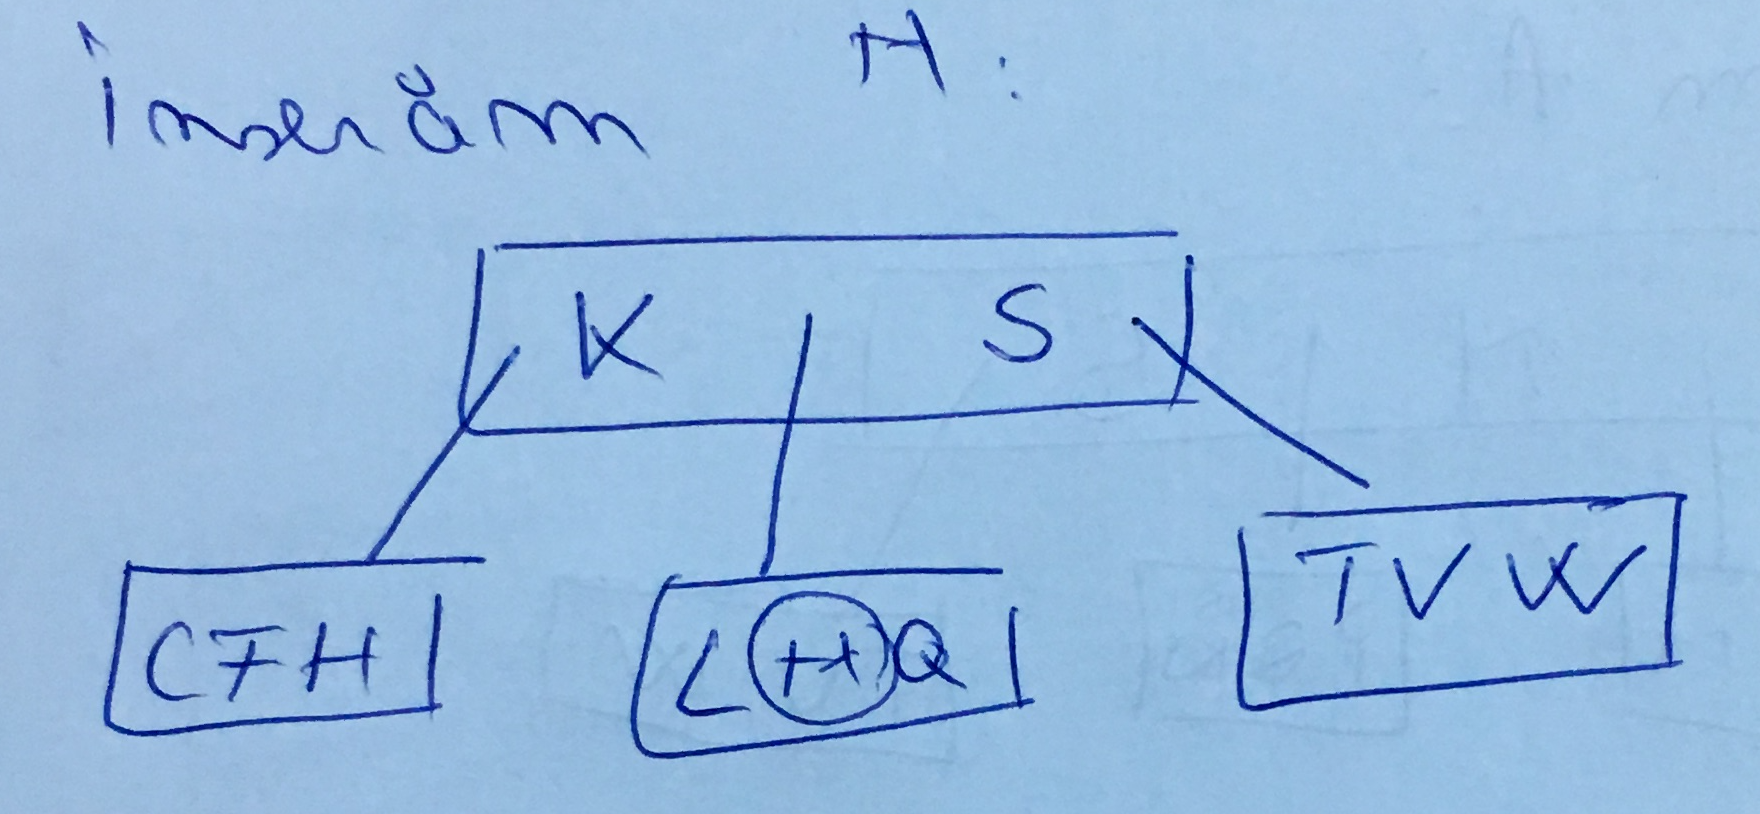 Inserăm H:
K S
CFH L H Q TVW